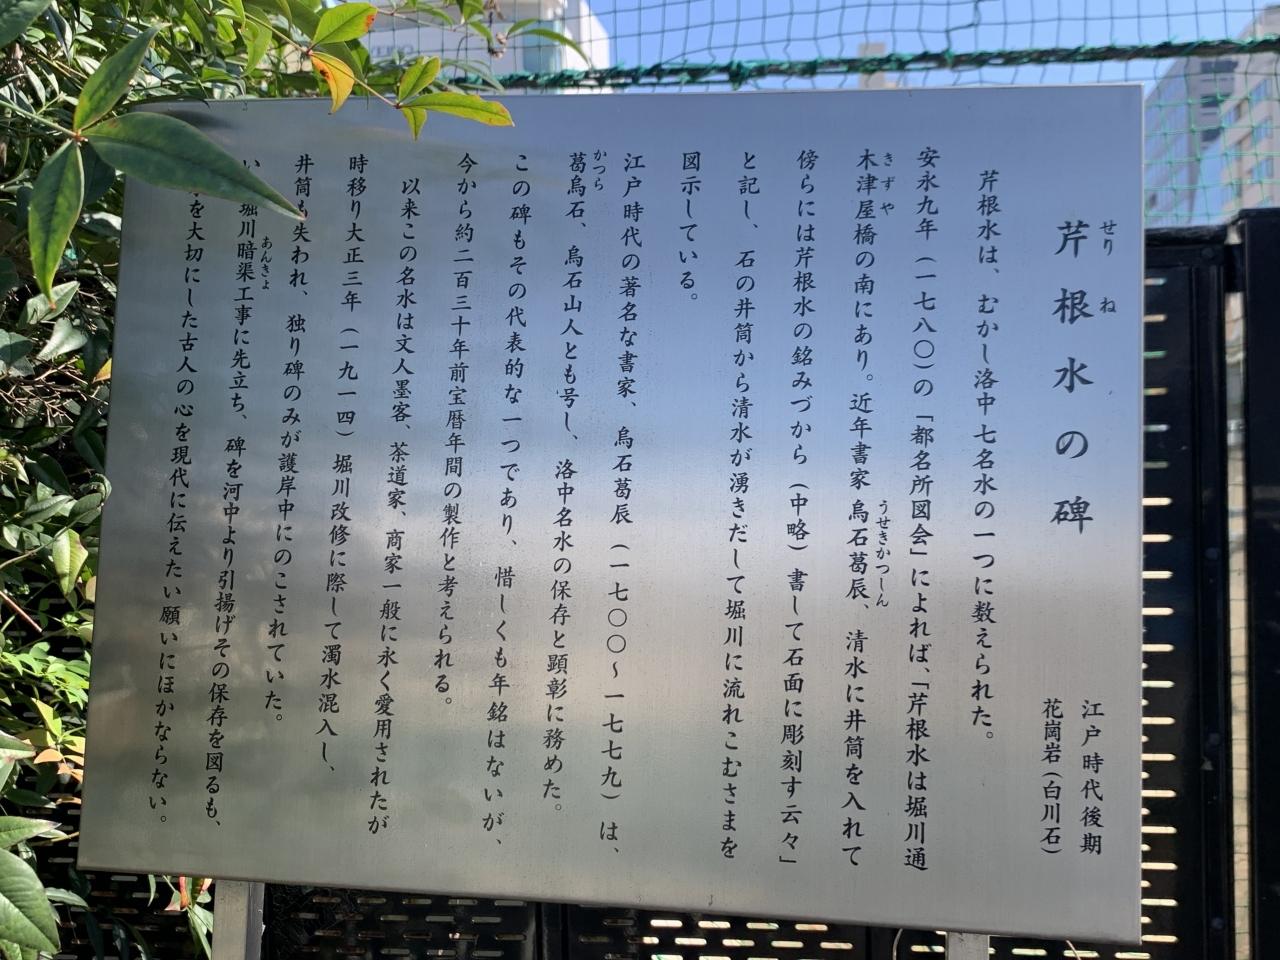 芹根水の碑
せり ね
江戸時代後期
花崗岩(白川石)
芹根水は、むかし洛中七名水の一つに数えられた。
安永九年(一七八〇)の「都名所図会」によれば、「芹根水は堀川通
木津屋橋の南にあり。近年書家 烏石葛辰、清水に井筒を入れて
きずや
うせきかつしん
傍らには芹根水の銘みづから(中略)書して石面に彫刻す云々」
と記し、石の井筒から清水が湧きだして堀川に流れこむさまを
図示している。
江戸時代の著名な書家、烏石葛辰(一七〇〇〜一七七九)は、
葛烏石、烏石山人とも号し、洛中名水の保存と顕彰に務めた。
かつら
この碑もその代表的な一つであり、惜しくも年銘はないが、
今から約二百三十年前宝暦年間の製作と考えられる。
以来この名水は文人墨客、茶道家、商家一般に永く愛用されたが
時移り大正三年(一九一四)堀川改修に際して濁水混入し、
井筒も失われ、独り碑のみが護岸中にのこされていた。
い 堀川暗渠工事に先立ち、碑を河中より引揚げその保存を図るも、
あんきょ
を大切にした古人の心を現代に伝えたい願いにほかならない。